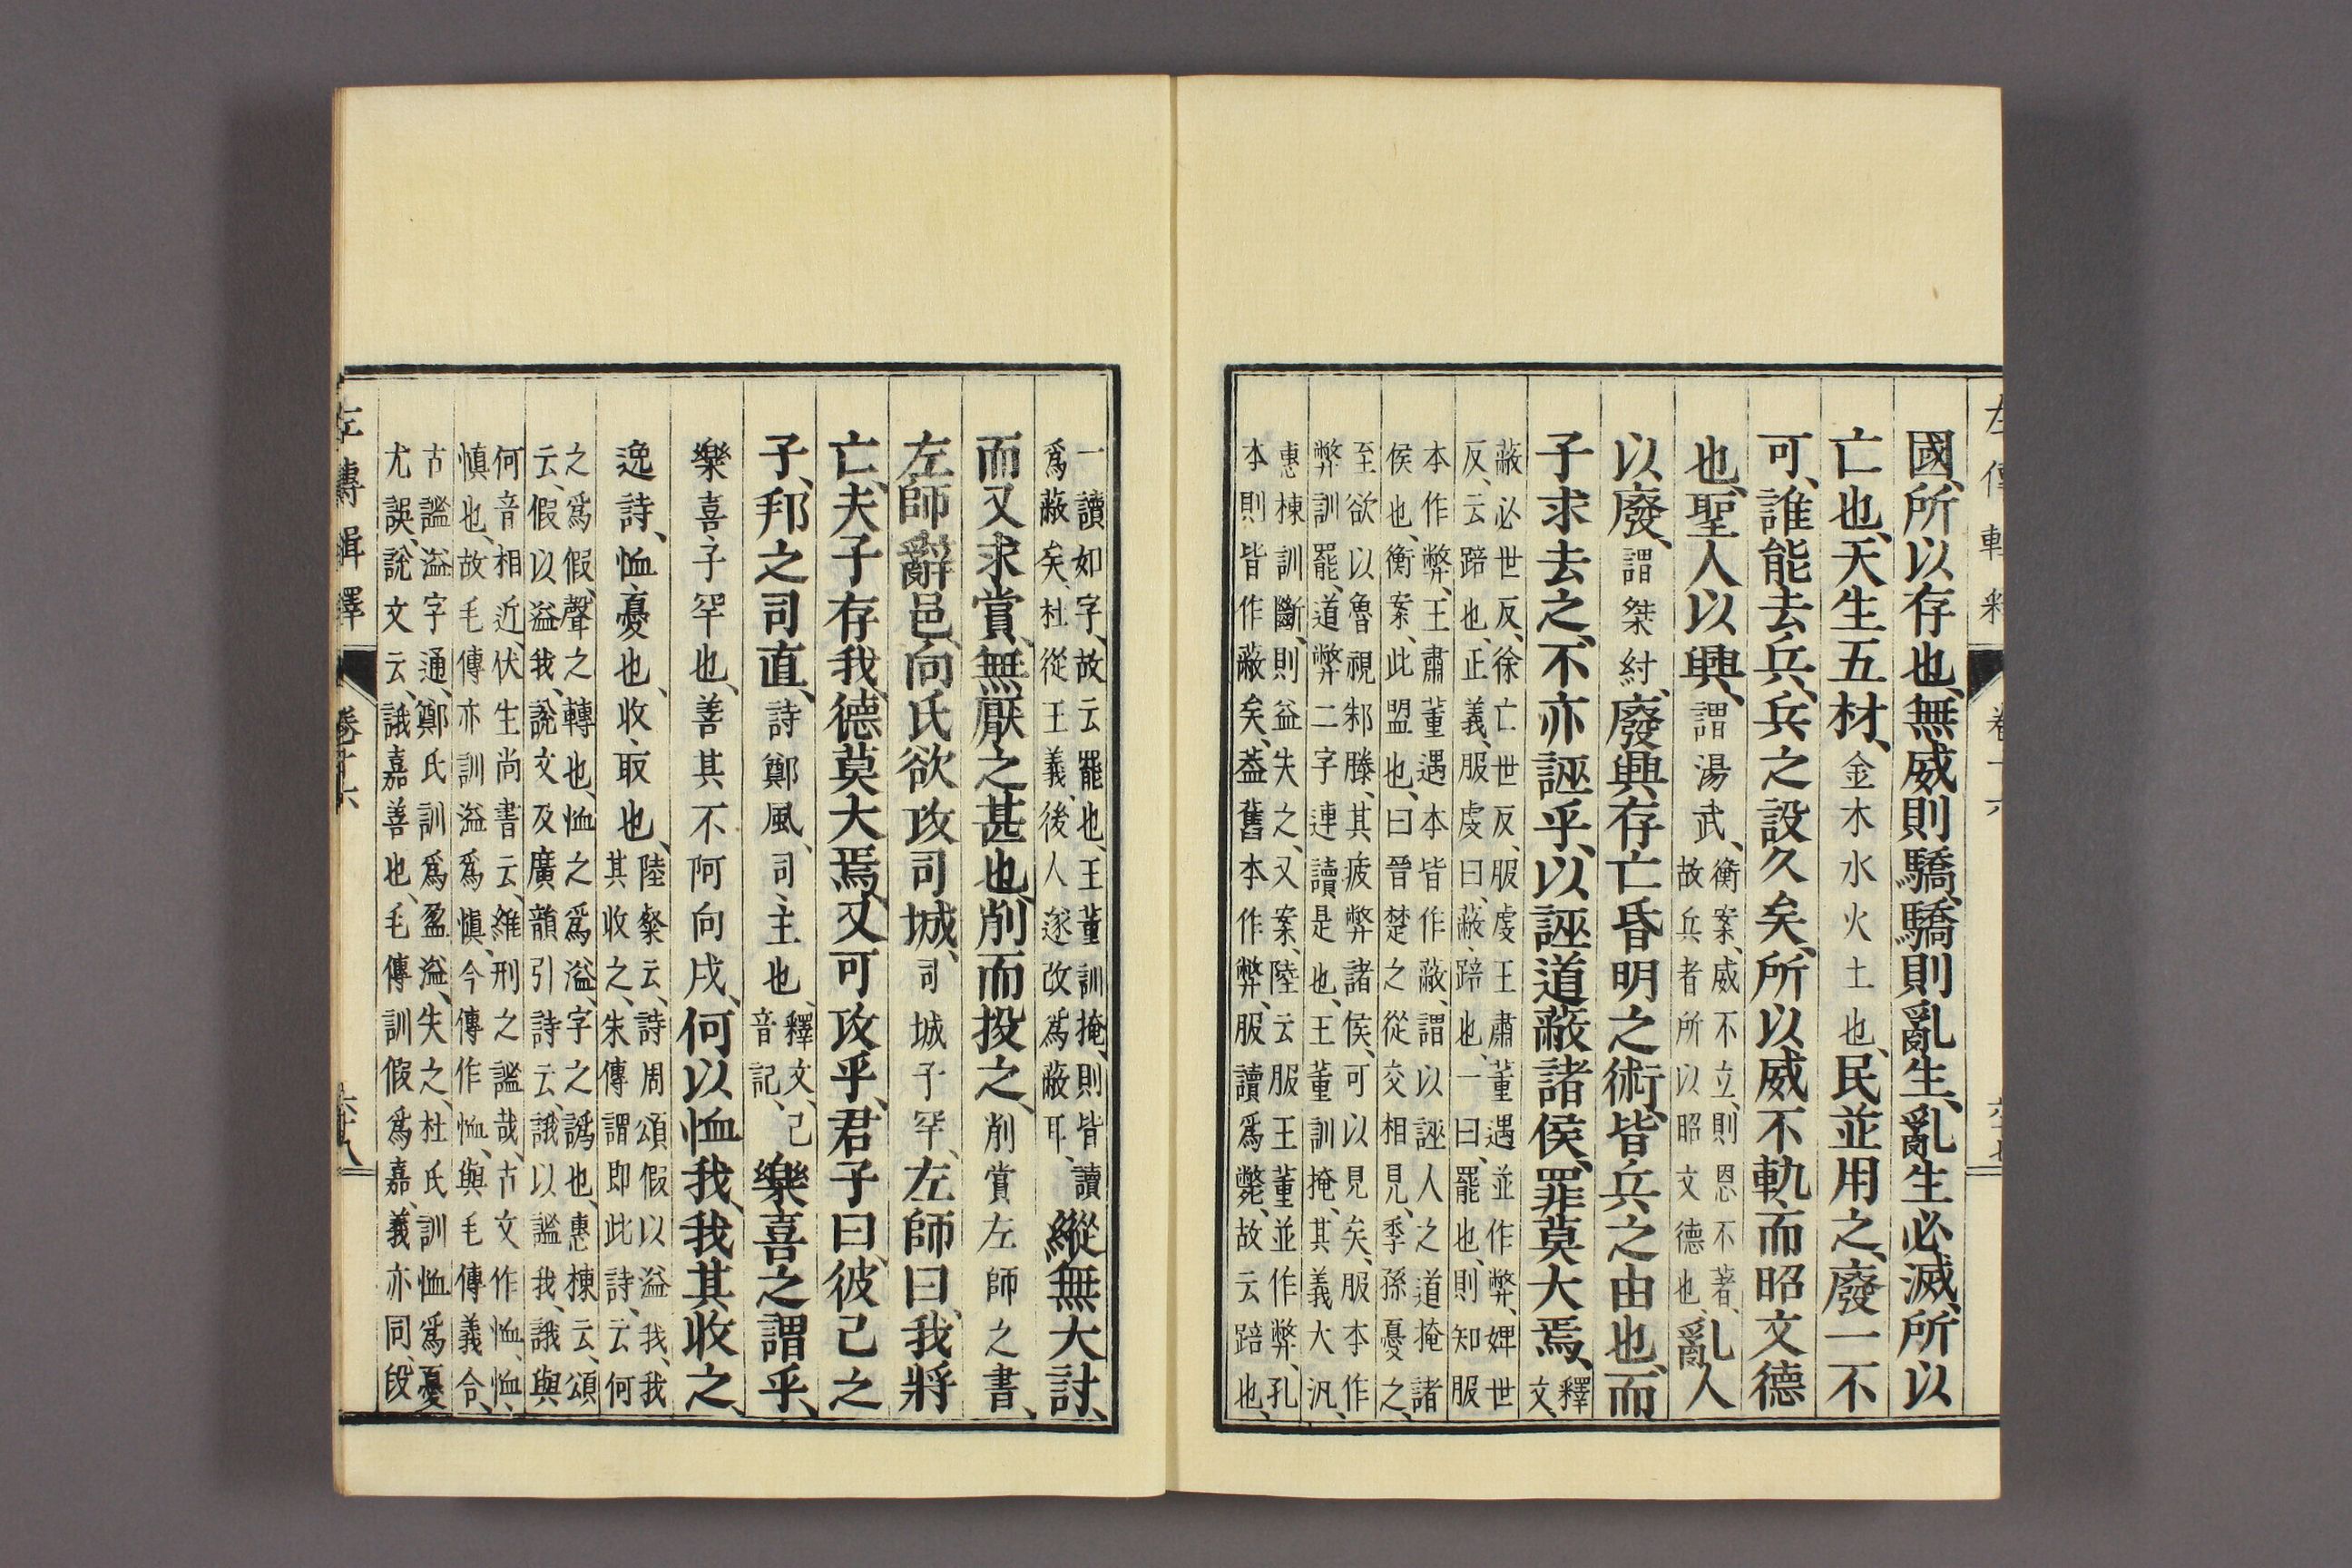 左傳輯釋　卷十六　六十七
國、所以存也、無威則驕、驕則亂生、亂生必滅、所以
亡也、天生五材、金木水火土也、民並用之、廢一不
可、誰能去兵、兵之設久矣、所以威不軌、而昭文德
也、聖人以興、謂湯武、衡案、威不立、則恩不著、故兵者所以昭文德也、亂人
以廢、謂桀紂、廢興存亡昏明之術、皆兵之由也、而
子求去之、不亦誣乎、以誣道蔽諸侯、罪莫大焉、釋文、
蔽必世反、徐亡世反、服虔王肅董遇並作弊、婢世
反、云踣也、正義、服虔曰、蔽、踣也、一曰、罷也、則知服
本作弊、王肅董遇本皆作蔽、謂以誣人之道掩諸
侯也、衡案、此盟也、曰晉楚之從交相見、季孫憂之、
至欲以魯視邾滕、其疲弊諸侯、可以見矣、服本作
弊訓罷、道弊二字連讀是也、王董訓掩、其義大汎、
惠棟訓斷、則益失之、又案、陸云服王董並作弊、孔
本則皆作蔽矣、葢舊本作弊、服讀爲斃、故云踣也、
一讀如字、故云罷也、王董訓掩、則皆讀
爲蔽矣、杜從王義、後人遂改爲蔽耳、縱無大討、
而又求賞、無厭之甚也、削而投之、削賞左師之書、
左師辭邑、向氏欲攻司城、司城子罕、左師曰、我將
亡、夫子存我、德莫大焉、又可攻乎、君子曰、彼己之
子、邦之司直、詩鄭風、司、主也、釋文、己音記、樂喜之謂乎、
樂喜子罕也、善其不阿向戌、何以恤我、我其收之、
逸詩、恤、憂也、收、取也、陸粲云、詩周頌假以溢我、我其收之、朱傳謂即此詩、云何
之爲假、聲之轉也、恤之爲溢、字之譌也、惠棟云、頌
云、假以溢我、說文及廣韻引詩云、誐以謐我、誐與
何音相近、伏生尚書云、維刑之謐哉、古文作恤、恤、
愼也、故毛傳亦訓溢爲愼、今傳作恤、與毛傳義合、
古謐溢字通、鄭氏訓爲盈溢、失之、杜氏訓恤爲憂
尤誤、說文云、誐嘉善也、毛傳訓假爲嘉、義亦同、段
左傳輯釋　卷十六　六十八